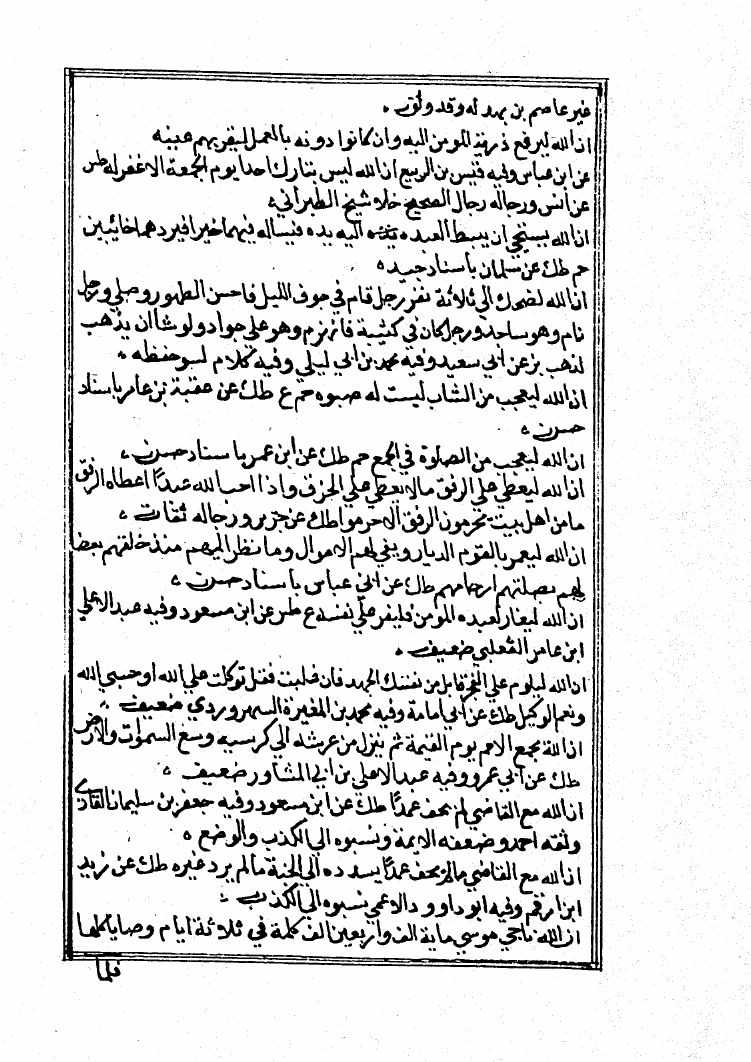 غير عاصم بن بهدلة وقد وثق
ان الله ليرفع ذرية المومن اليه وان كانوا دونه بالعمل ليقر بهم عينه
عن ابن عباس وفيه قيس بن الربيع ان الله ليس بتارك احدا يوم الجمعة الا غفر له طس
عن انس ورجاله رجال الصحيح خلا شيخ الطبراني
ان الله يستحي ان يبسط العبد يده اليه فيساله فيهما خيرا فيردهما خائبين
حم طك عن سلمان باسناد جيد
ان الله لضحك الي ثلاثة نفر رجل قام في جوف الليل فاحسن الطهور وصلي ورجل
نام وهو ساجد ورجل كان في كتيبة فانهزم وهو علي جواد ولو شا ان يذهب
لذهب بز عن ابي سعيد وفيه محمد بن ابي ليلي وفيه كلام لسو حفظه
ان الله ليعجب من الشاب ليست له صبوه حم ع طك عن عقبة بن عامر باسناد
حسن
ان الله ليعجب من الصلوة في الجمع حم طك عن ابن عمر باسناد حسن
ان الله ليعطي علي الرفق مالا يعطي علي الخرق واذا احب الله عبدا اعطاه الرفق
ما من اهل بيت يحرمون الرفق الا حرموا طك عن جرير ورجاله ثقات
ان الله ليعمر بالقوم الديار ويثمر لهم الاموال وما نظر اليهم منذ خلقهم بغضا
لهم بصلتهم ارحامهم طك عن ابن عباس باسناد حسن
ان الله ليغار لعبده المومن فليغر علي نفسه ع طس عن ابن مسعود وفيه عبد الاعلي
ابن عامر الثعلبي ضعيف
ان الله ليلوم علي العجز قابل من نفسك الجهد فان غلبت فقل توكلت علي الله او حسبي الله
ونعم الوكيل طك عن ابي امامة وفيه محمد بن المغيرة السهروردي ضعيف
ان الله يجمع الامم يوم القيمة ثم ينزل من عرشه الي كرسيه وسع السموات والارض
طك عن ابي عمرو وفيه عبد الاعلي بن ابي المشاور ضعيف
ان الله مع القاضي لم يحف عمدا طك عن ابن مسعود وفيه جعفر بن سليمان القاري
وثقه احمد وضعفه الايمة ونسبوه الي الكذب والوضع
ان الله مع القاضي مالم يحف عمدا يسدده الي الجنة مالم يرد غيره طك عن زيد
ابن ارقم وفيه ابو داوود الاعمي نسبوه الي الكذب
ان الله ناجي موسي ماية الف واربعين الف كلمة في ثلاثة ايام وصايا كلها
فلما